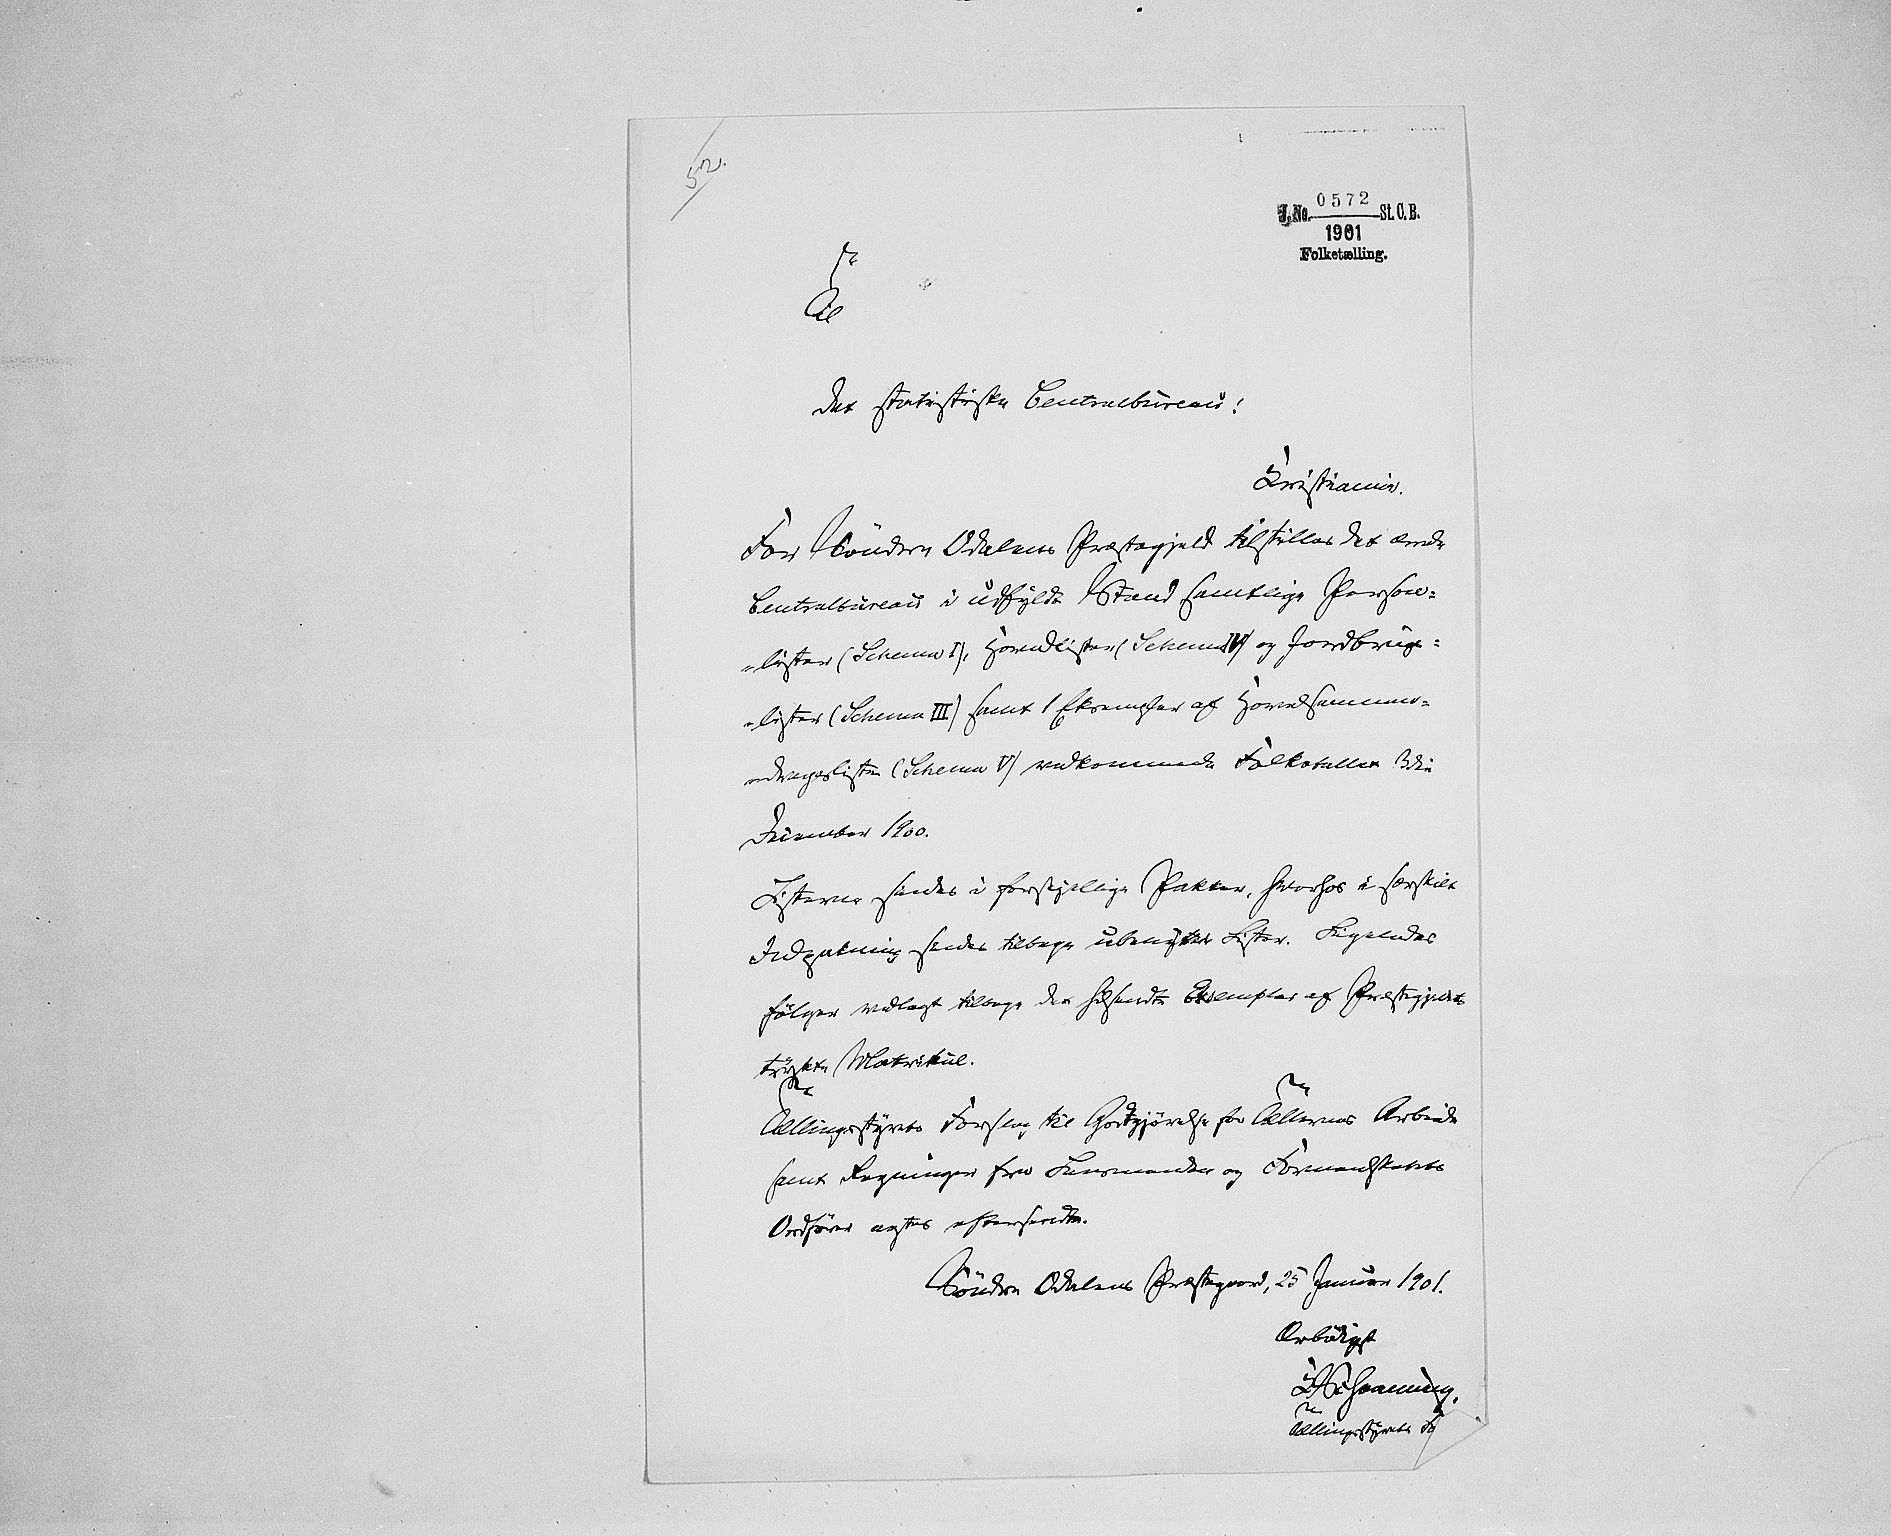 52.
J. No. 0572 St. C. B.
1901
Folketælling.
Til
det statistiske Centralbureau!
Kristiania.
For Söndre Odalens Præstegjeld tilstilles det ærede
Centralbureau i udfyldt Stand samtlige Person=
=lister (Schema I), Hovedlister (Schema IV) og Jordbrugs=
=lister (Schema III) samt 1 Eksemplar af Hovedsammen=
=dragsliste (Schema V) vedkommende Folketallet 3die
December 1900.
Listerne sendes i forskjellige Pakker, hvorhos i særskilt
Indpakning sendes tilbage ubenyttede Lister. Ligeledes
fölger vedlagt tilbage det tilsendte Eksemplar af Præstegjeldets
trykte Matrikul.
Tællingsstyrets Forslag til Godtgjörelse for Tællernes Arbeide
samt Regninger fra Lensmanden og Formandskabets
Ordförer agtes eftersendte.
Söndre Odalens Præstegaard, 25 Januar 1901.
Ærbödigst
Schanning.
Tællingsstyrets